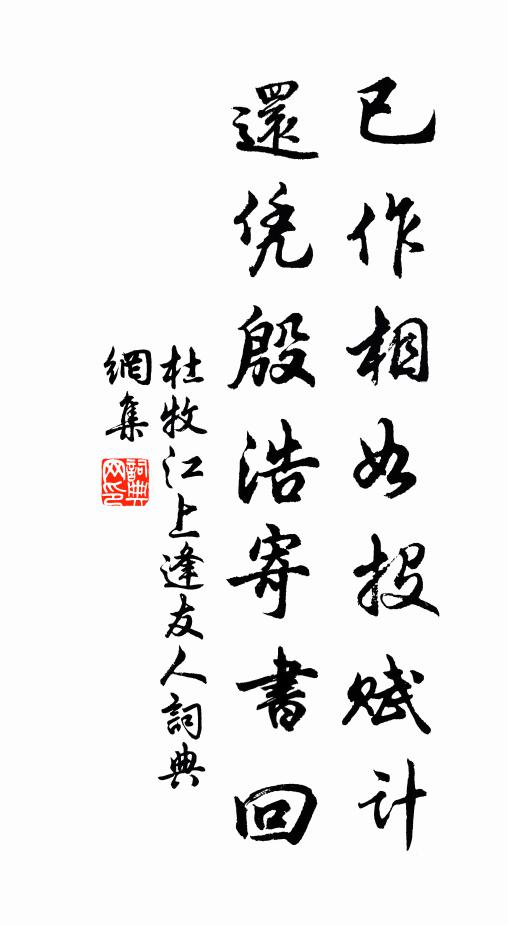 已作相如投賦計
還凭殷浩寄書回
杜牧江上逢友人詞典
網集
詞典
网印